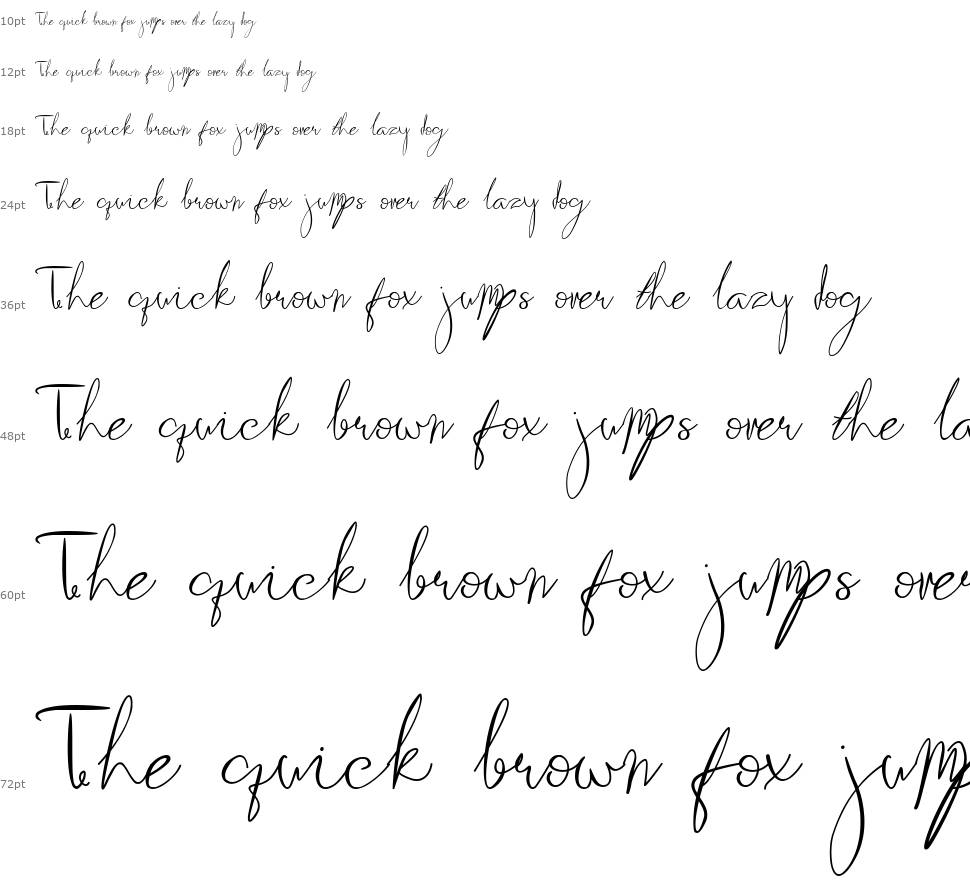 10pt The quick brown fox jumps over the lazy dog
12pt The quick brown fox jumps over the lazy dog
18pt The quick brown fox jumps over the lazy dog
24pt The quick brown fox jumps over the lazy dog
36pt The quick brown fox jumps over the lazy dog
48pt The quick brown fox jumps over the la
60pt The quick brown fox jumps over
72pt The quick brown fox jump